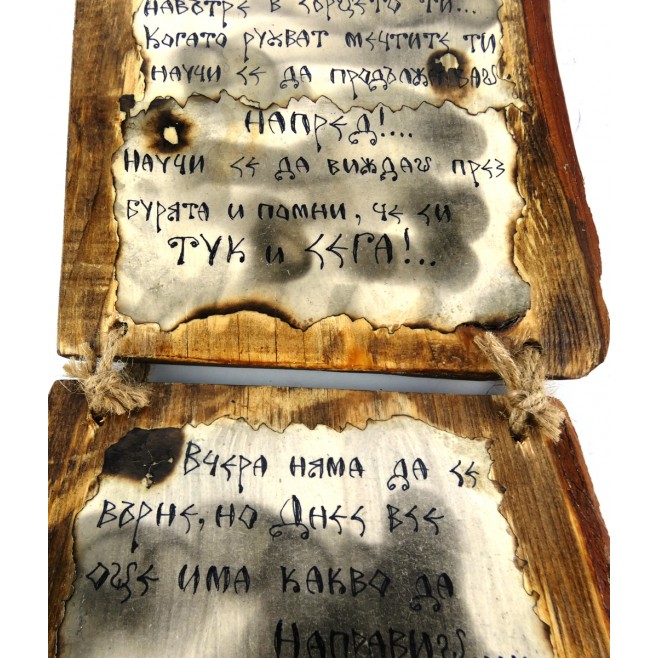 навътре в сърцето ти...
Когато рухват мечтите ти
научи се да продължаваш
НАПРЕД!...
научи се да виждаш през
бурята и помни, че си
ТУК и СЕГА!..
Вчера няма да се
върне, но Днес все
още има какво да
Направиш.....